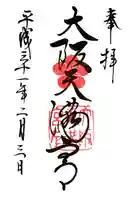 奉拝
大阪天満宮
平成三十一年二月三日